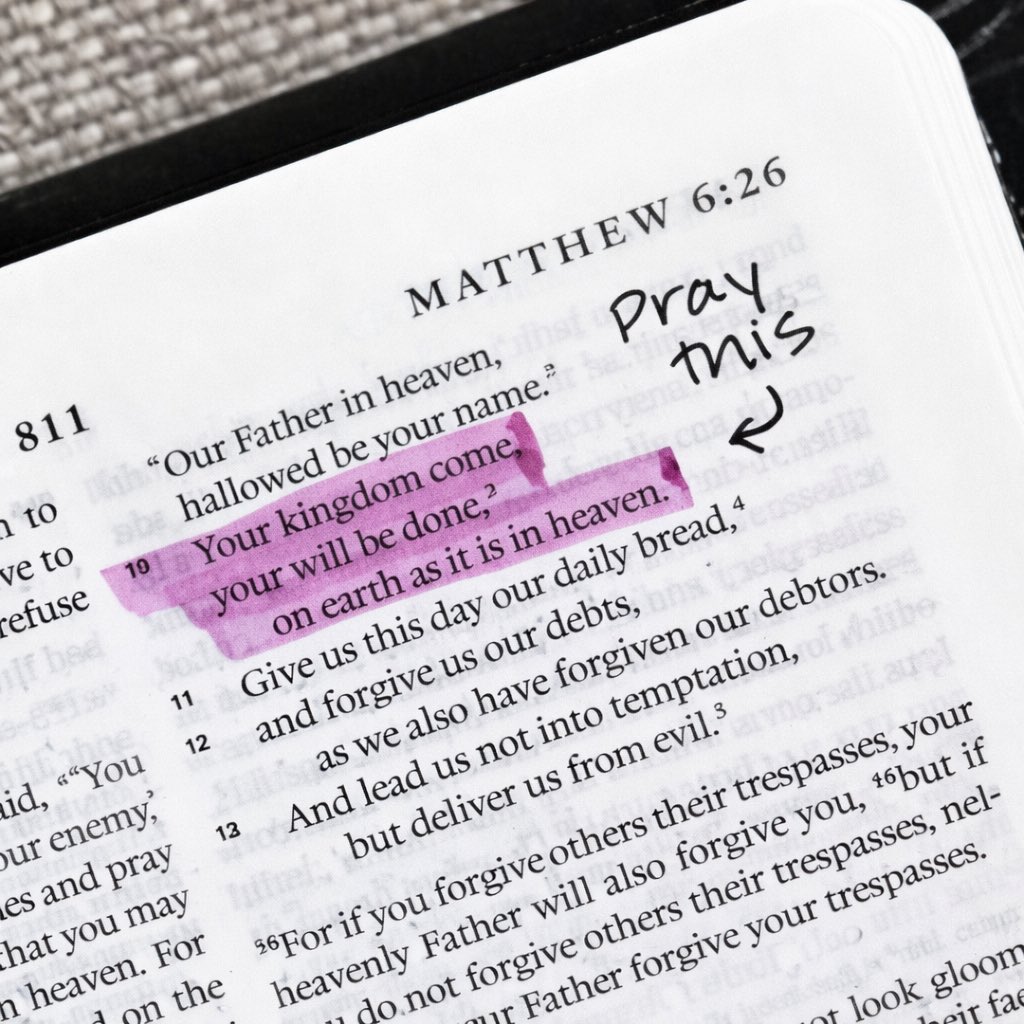 MATTHEW 6:26
pray
this
811
n to
ve to
refuse
aid, ““You
our enemy,
es and pray
that you may
n heaven. For
d on the
“Our Father in heaven,
hallowed be your name.²
10 Your kingdom come,
your will be done,²
on earth as it is in heaven.
11 Give us this day our daily bread,⁴
12 and forgive us our debts,
as we also have forgiven our debtors.
13 And lead us not into temptation,
but deliver us from evil.³
⁵⁶For if you forgive others their trespasses, your
heavenly Father will also forgive you, ⁴⁶but if
do not forgive others their trespasses, nel-
Father forgive your trespasses.
look gloom